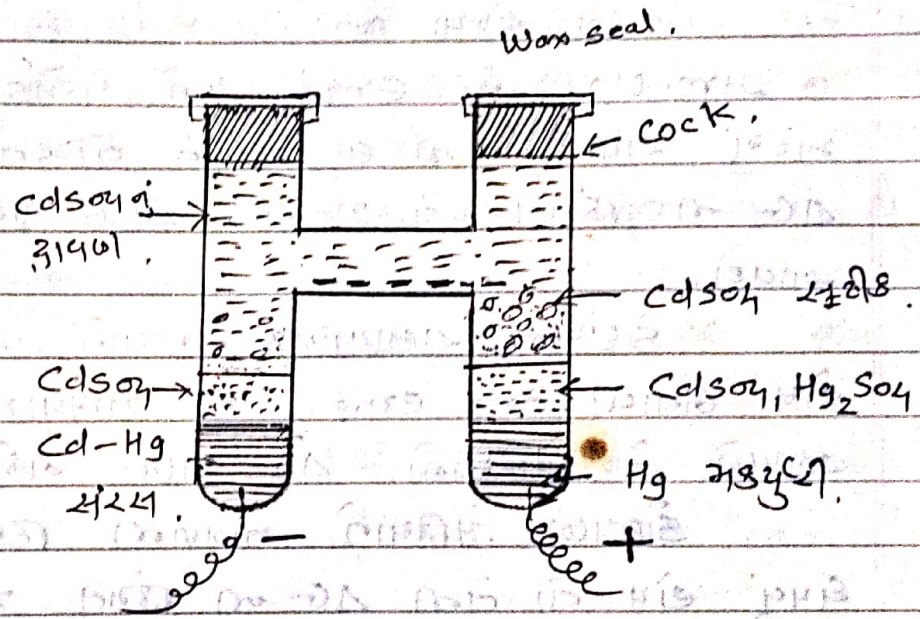 Wax seal.
← Cock.
CdSO4 નું →
દ્રાવણ.
← CdSO4 સ્ફટીક.
CdSO4 →
← CdSO4, Hg2SO4
Cd-Hg
સંરસ.
← Hg મરક્યુરી.
−
+